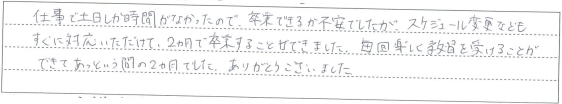 仕事で土日しか時間がなかったので、卒業できるか不安でしたが、スケジュール変更なども
すぐに対応いただけて、2ヵ月で卒業することができました。毎回楽しく教習を受けることが
できてあっという間の2ヵ月でした。ありがとうございました